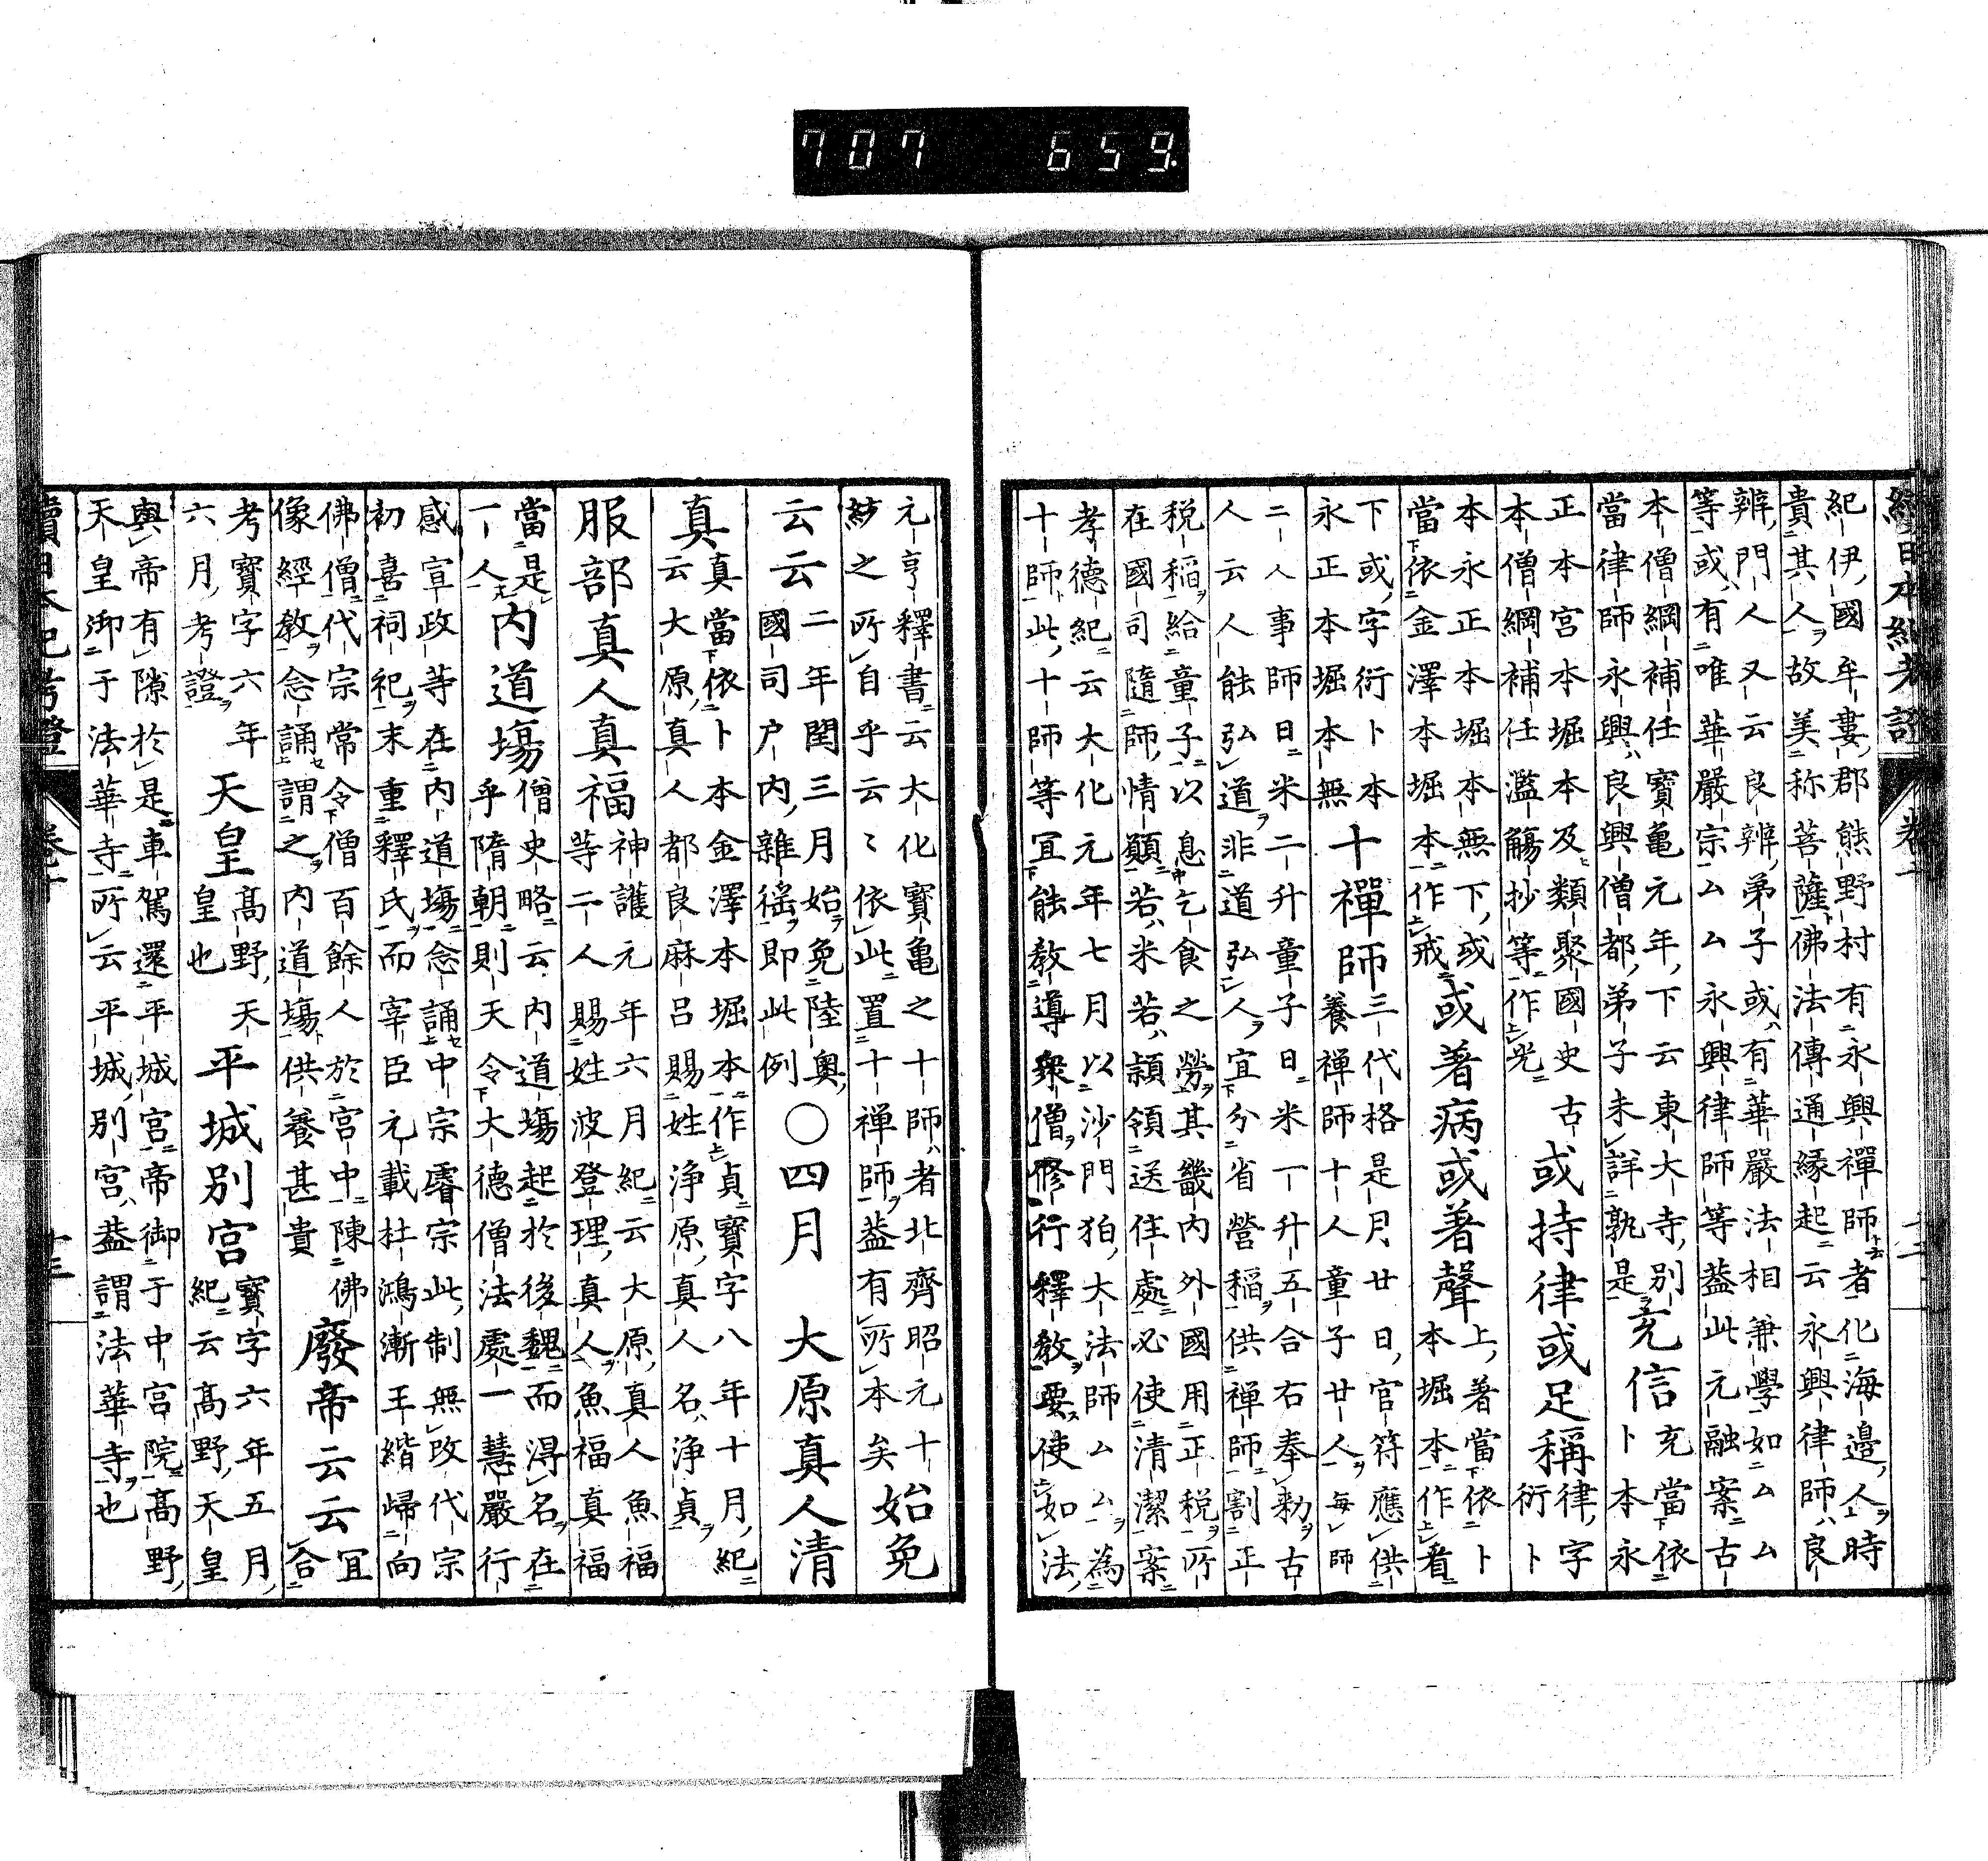 707 659.
紀伊國牟婁郡熊野村有永興禪師者化海邊人時
貴其人故美称菩薩佛法傳通縁起云永興律師良
辨門人又云良辨弟子或有華嚴法相兼學如厶厶
等或有唯華嚴宗厶厶永興律師等葢此元融案古
本僧綱補任寶亀元年下云東大寺別
當律師永興良興僧都弟子未詳孰是
充信
充當依
卜本永
正本宮本堀本及類聚國史古
本僧綱補任濫觴抄等作光
或持律或足稱
律字
衍卜
本永正本堀本無下或
當依金澤本堀本作戒
或著病或著聲
上著當依卜
本堀本作看
下或字衍卜本
永正本堀本無
十禪師
三代格是月廿日官符應供
養禅師十人童子廿人毎師
二人事師日米二升童子日米一升五合右奉勅古
人云人能弘道非道弘人宜分省營稲供禅師割正
税稲給童子以息乞食之勞其畿内外國用正税所
在國司隨師情願若米若頴領送住處必使清潔案
孝德紀云大化元年七月以沙門狛大法師厶厶為
十師此十師等宜能教導衆僧修行釋教要使如法
元亨釋書云大化寳亀之十師者北齊昭元十
紗之所自乎云〻依此置十禅師葢有所本矣
始免
云云
二年閏三月始免陸奥
國司戸内雜徭即此例
〇四月 大原真人清
真
真當依卜本金澤本堀本作貞寶字八年十月紀
云大原真人都良麻呂賜姓浄原真人名浄貞
服部真人真福
神護元年六月紀云大原真人魚福
等二人賜姓波登理真人魚福真福
當是
一人
内道場
僧史略云内道場起於後魏而淂名在
乎隋朝則天令大德僧法處一慧嚴行
感宣政等在内道場念誦中宗睿宗此制無改代宗
初喜祠祀末重釋氏而宰臣元載杜鴻漸王縉歸向
佛僧代宗常令僧百餘人於宮中陳佛
像經教念誦謂之内道場供養甚貴
廢帝云云
宜
合
考寶字六年
六月考證
天皇
高野天
皇也
平城別宮
寳字六年五月
紀云高野天皇
與帝有隙於是車駕還平城宮帝御于中宮院高野
天皇御于法華寺所云平城別宮葢謂法華寺也
續日本紀考證
卷十
十三